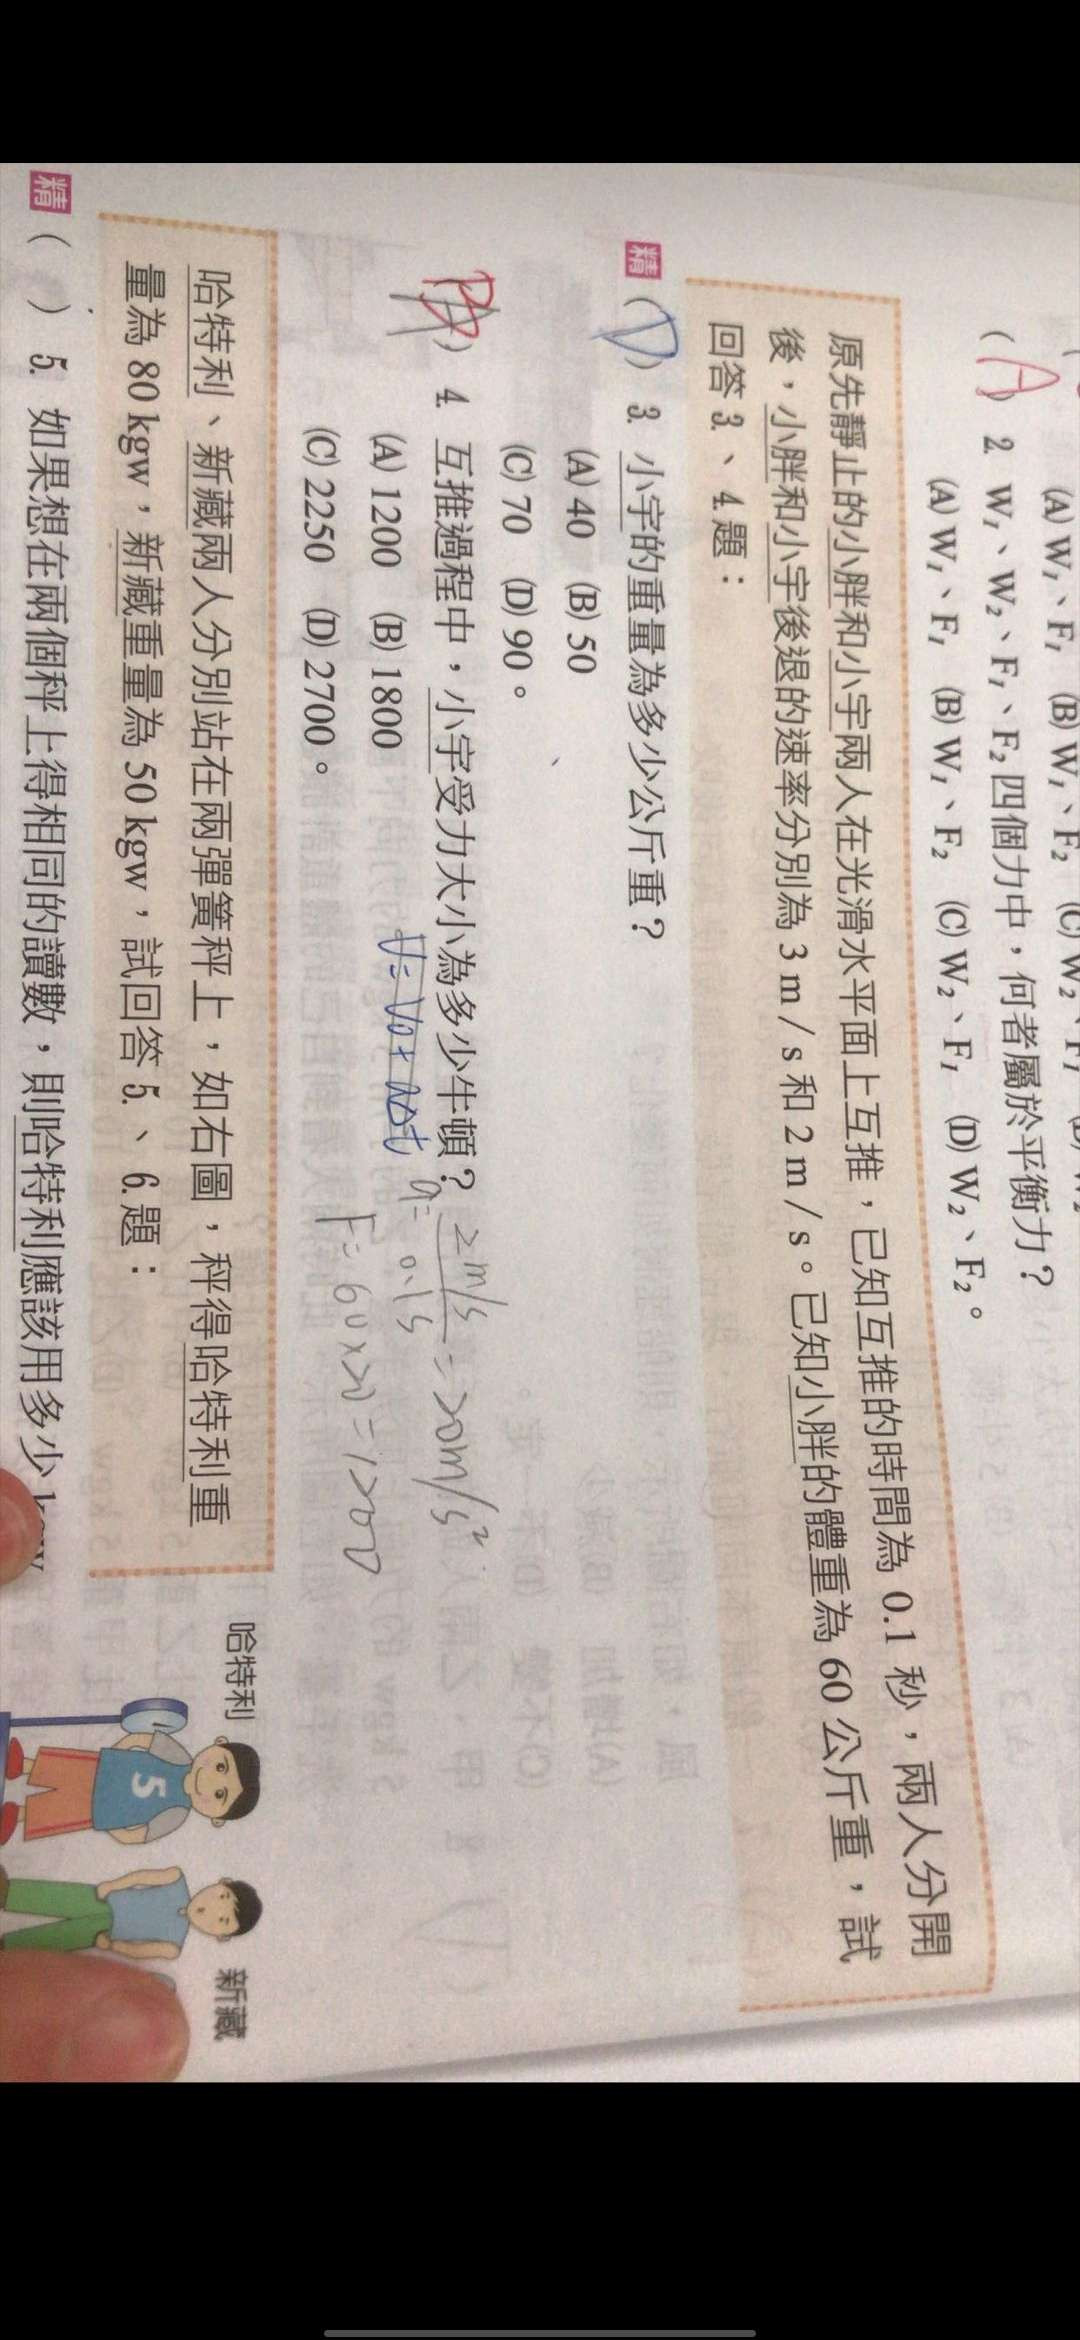 (A) W₁、F₁ (B) W₁、F₂ (C) W₂、F₁
(A) 2. W₁、W₂、F₁、F₂四個力中，何者屬於平衡力？
(A) W₁、F₁ (B) W₁、F₂ (C) W₂、F₁ (D) W₂、F₂。
原先靜止的小胖和小宇兩人在光滑水平面上互推，已知互推的時間為 0.1 秒，兩人分開
後，小胖和小宇後退的速率分別為 3 m / s 和 2 m / s。已知小胖的體重為 60 公斤重，試
回答 3.、4.題：
精 (D) 3. 小宇的重量為多少公斤重？
(A) 40 (B) 50
(C) 70 (D) 90。
) 4. 互推過程中，小宇受力大小為多少牛頓？
(A) 1200 (B) 1800
(C) 2250 (D) 2700。
V = V0 + aΔt
a = 2m/s / 0.1s = 20m/s²
F = 60×20 = 1200
哈特利、新藏兩人分別站在兩彈簧秤上，如右圖，秤得哈特利重
量為 80 kgw，新藏重量為 50 kgw，試回答 5.、6.題：
哈特利
5
新藏
精 ( ) 5. 如果想在兩個秤上得相同的讀數，則哈特利應該用多少 kgw